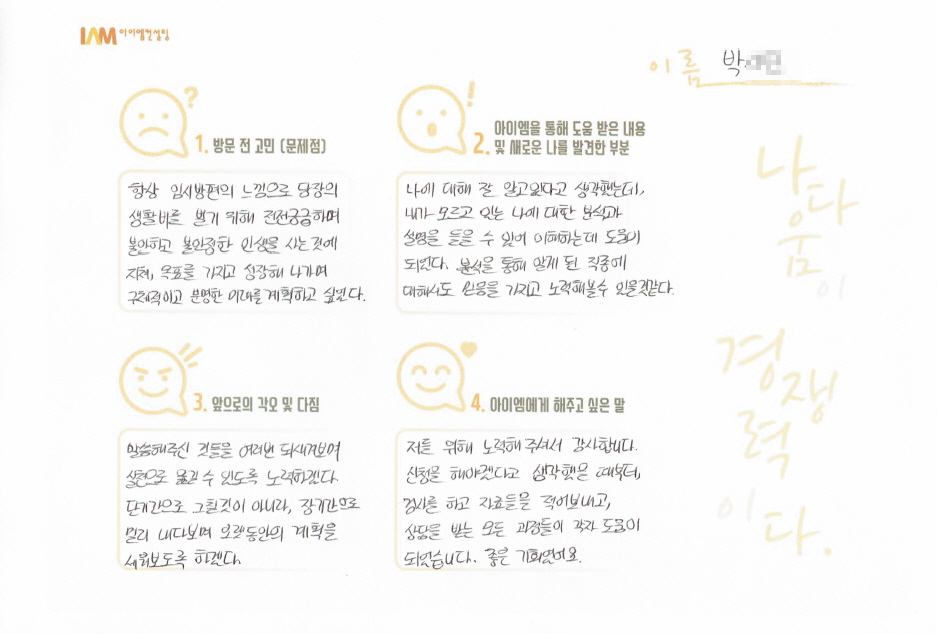 IAM 아이엠컨설팅
이름 박
1. 방문 전 고민 (문제점)
항상 임시방편의 느낌으로 당장의
생활비를 벌기 위해 전전긍긍하며
불안하고 불안정한 인생을 사는 것에
지쳐, 목표를 가지고 성장해 나가며
구체적이고 분명한 미래를 계획하고 싶었다.
2. 아이엠을 통해 도움 받은 내용
및 새로운 나를 발견한 부분
나에 대해 잘 알고있다고 생각했는데,
내가 모르고 있는 나에 대한 분석과
설명을 들을 수 있어 이해하는데 도움이
되었다. 분석을 통해 알게 된 직종에
대해서도 믿음을 가지고 노력해볼수 있을것같다.
3. 앞으로의 각오 및 다짐
말씀해주신 것들을 여러번 되새겨보며
실천으로 옮길 수 있도록 노력하겠다.
단기간으로 그칠것이 아니라, 장기간으로
멀리 내다보며 오랫동안의 계획을
세워보도록 하겠다.
4. 아이엠에게 해주고 싶은 말
저를 위해 노력해 주셔서 감사합니다.
신청을 해야겠다고 생각했을 때부터,
검사를 하고 자료들을 적어보내고,
상담을 받는 모든 과정들이 각자 도움이
되었습니다. 좋은 기회였어요.
나다움이
경쟁력이다.